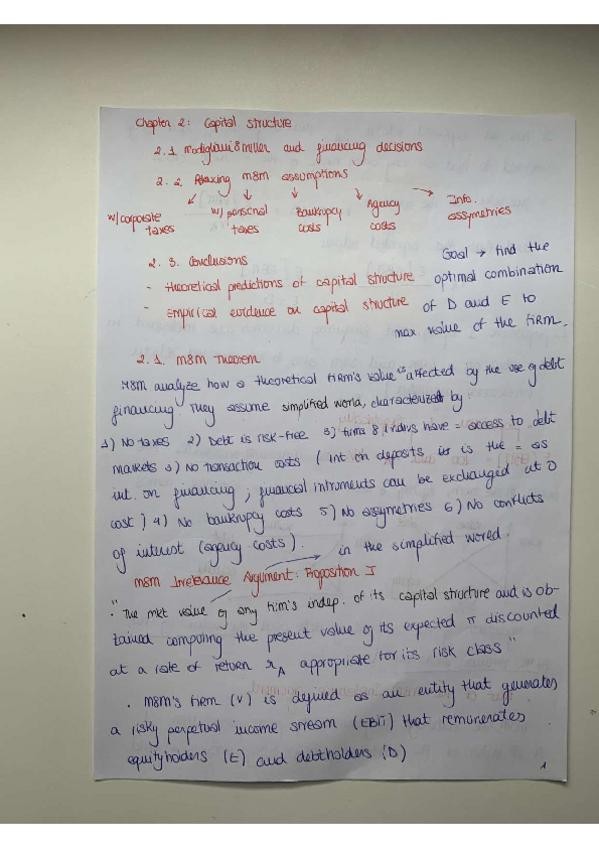 Chapter 2: Capital structure
2.1 Modigliani & Miller and financing decisions
2.2. Relaxing M&M assumptions
w/corporate taxes
w/ personal taxes
Bankrupcy costs
Agency costs
Info. assymetries
2.3. Conclusions
- theoretical predictions of capital structure
- Empirical evidence on capital structure
Goal → find the
optimal combination
of D and E to
max value of the FIRM.
2.1. M&M Theorem
M&M analyze how a theoretical FIRM's value is affected by the use of debt
financing. They assume simplified world, characterized by
1) No taxes 2) Debt is risk-free 3) firms & indivs have = access to debt
markets 3) No transaction costs ( int on deposits is is the = as
int. on financing ; financial intruments can be exchanged at 0
cost ) 4) No bankrupcy costs 5) No assymetries 6) No conflicts
of interest (agency costs).
in the simplified world.
M&M Irrelevance Argument: Proposition I
" . The mkt value of any firm's indep. of its capital structure and is ob-
tained computing the present value of its expected π discounted
at a rate of return rA appropriate for its risk class "
. M&M's FIRM (V) is defined as an entity that generates
a risky perpetual income stream (EBIT) that remunerates
equityholders (E) and debtholders (D)
1